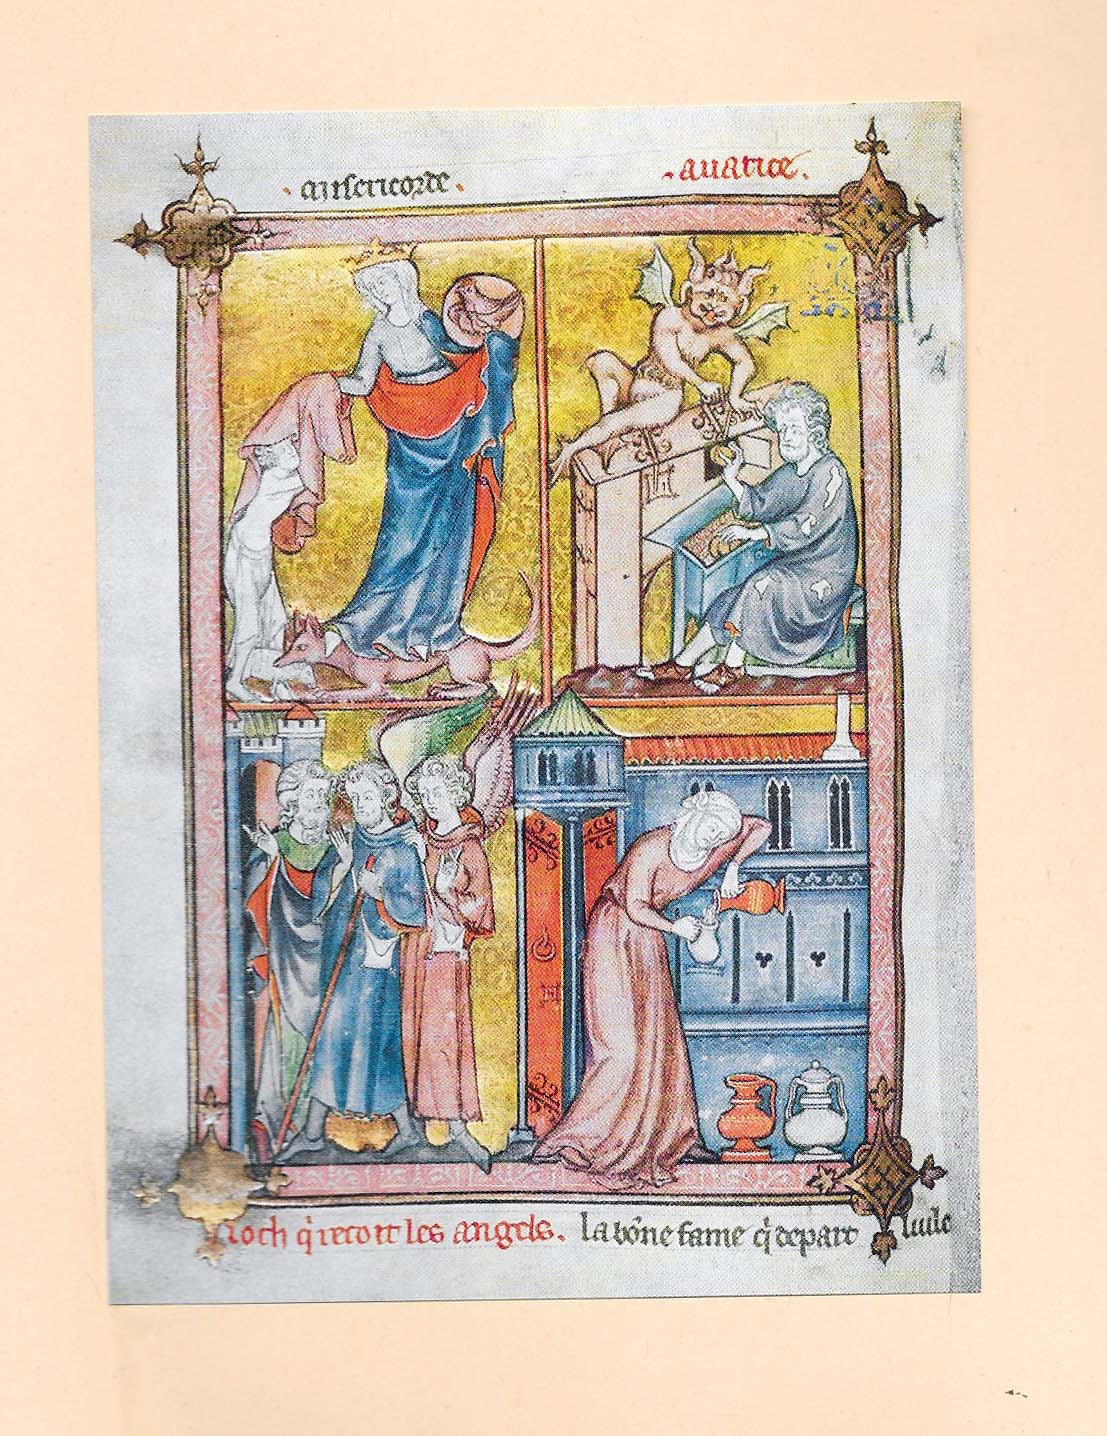 · misericorde ·
· auarice ·
loth q̍ recoit les angels . la bōne fame q̍ depart luile